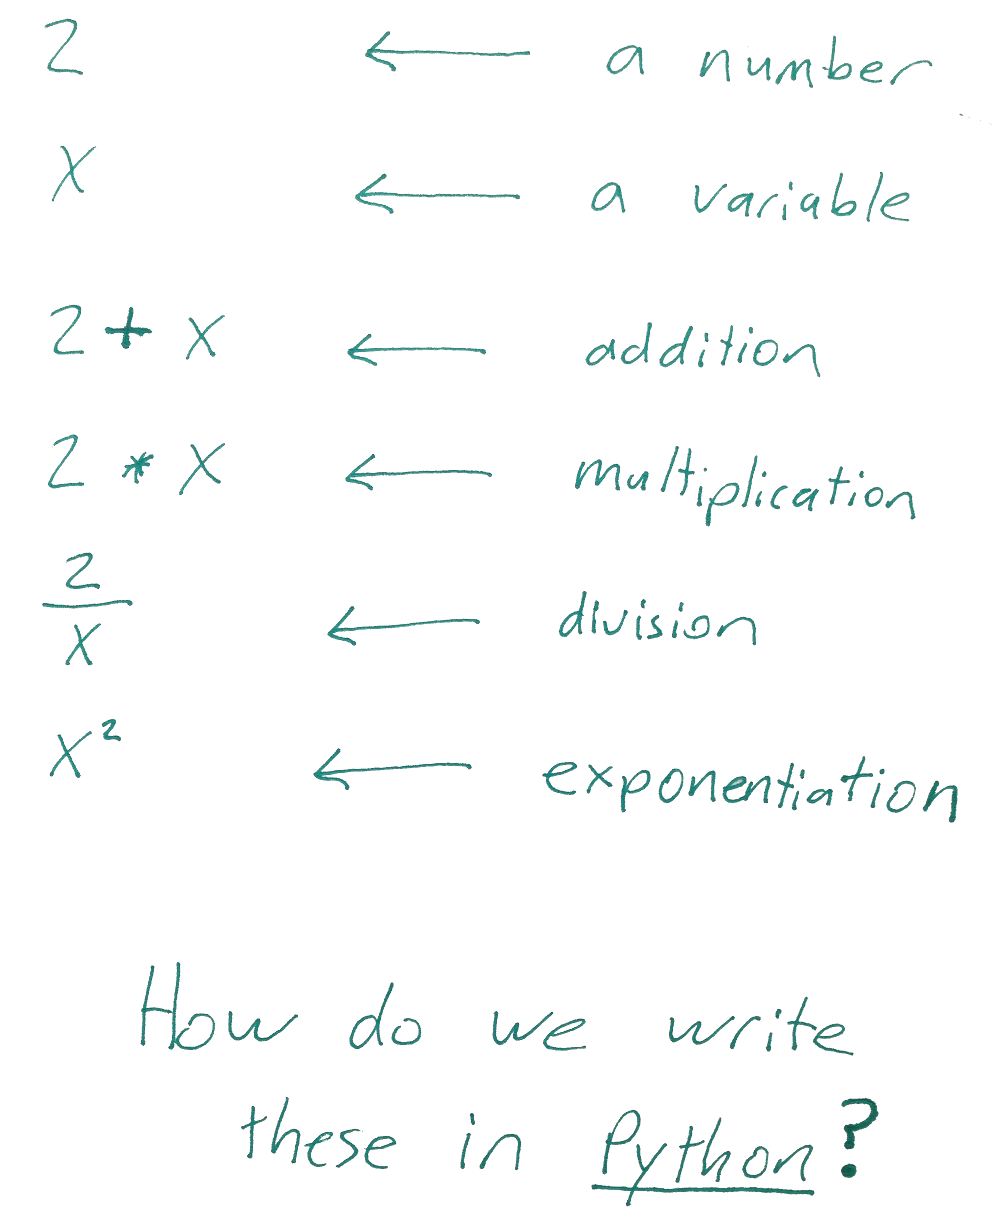 2 ← a number
x ← a variable
2 + x ← addition
2 * x ← multiplication
2
x ← division
x² ← exponentiation
How do we write
these in Python?